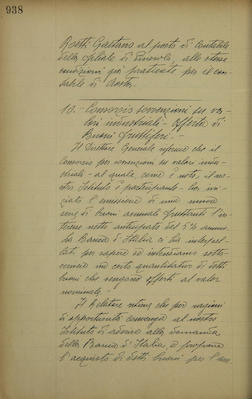 938
Rosetti Gaetano al posto di Contabile
della filiale di Pinerolo, alle stesse
condizioni già praticate per il con-
tabile di Aosta.
10 - Consorzio sovvenzioni su va-
lori industriali - offerta di
Buoni fruttiferi.
Il Direttore Generale riferisce che il
Consorzio per sovvenzioni su valori indu-
striali - al quale, come è noto, il no-
stro Istituto è partecipante - ha ini-
ziato l'emissione di una nuova
serie di buoni annuali fruttanti l'in-
teresse netto anticipato del 5% annuo.
La Banca d'Italia ci ha interpel-
lati per sapere se intendiamo sotto-
scrivere un certo quantitativo di detti
buoni che vengono offerti al valor
nominale.
Il Relatore ritiene che per ragioni
di opportunità convenga al nostro
Istituto di aderire alla domanda
della Banca d'Italia e propone
l'acquisto di detti buoni per l'am-